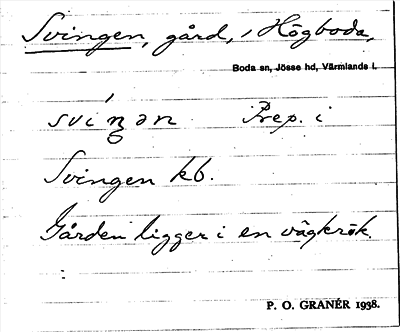 Svingen, gård, i Högboda,
Boda sn, Jösse hd, Värmlands l.
svíŋən Prep. i
Svingen kb.
Gården ligger i en vägkrök.
P. O. GRANÉR 1938.